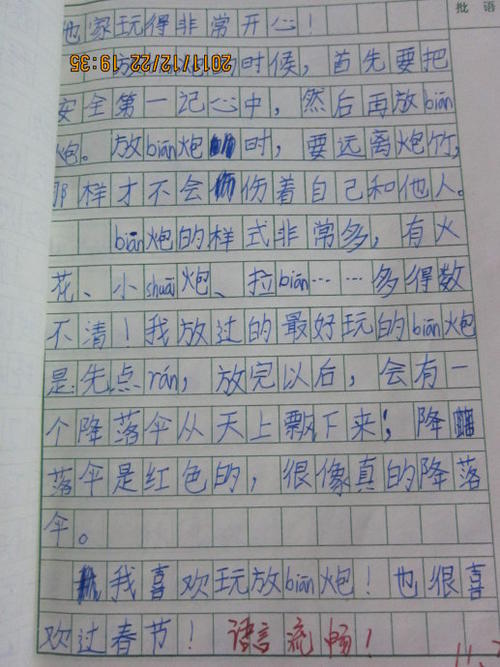 批 语
他家玩得非常开心！
2011/12/22 19:35
放 的时候，首先要把
安全第一记心中，然后再放biān
炮。放biān炮 时，要远离炮竹，
那样才不会 伤着自己和他人。
biān炮的样式非常多，有火
花、小shuāi炮、拉biān……多得数
不清！我放过的最好玩的biān炮
是：先点rán，放完以后，会有一
个降落伞从天上飘下来；降
落伞是红色的，很像真的降落
伞。
我喜欢玩放biān炮！也很喜
欢过春节！ 语言流畅！
11.